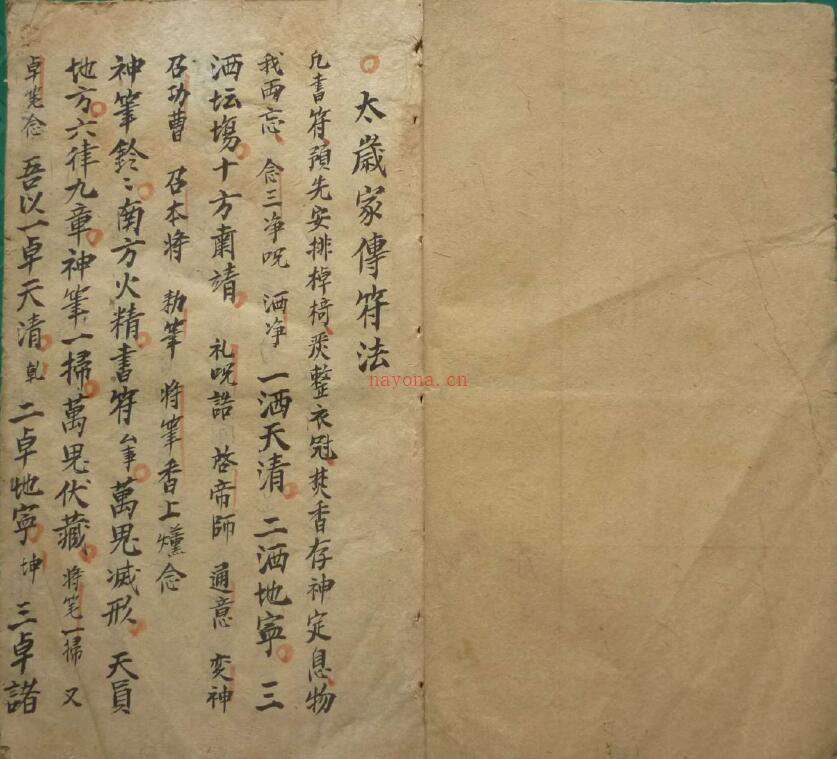 太歲家傳符法
凡書符預先安排棹椅炭整衣冠焚香存神定息物
我兩忘 念三净呪 洒净 一洒天清 二洒地寧 三
洒坛塲十方肅靖 礼呪誥 啓帝師 通意 变神
召功曹 召本将 勅筆 将筆香上燻念
神筆鈴〻南方火精書符厶事萬鬼滅形 天員
地方六律九章神筆一掃萬鬼伏藏 将笔一掃 又
卓笔念 吾以一卓天清 乹 二卓地寧 坤 三卓諸
nayona.cn